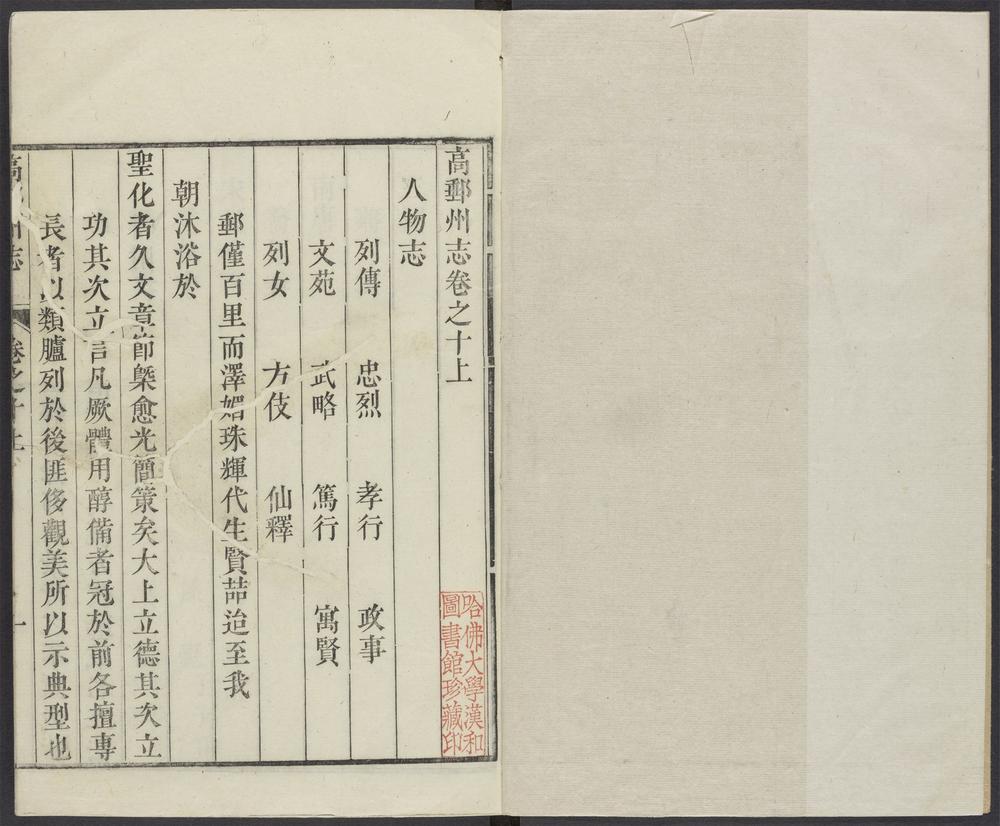 高郵州志卷之十上
哈佛大學漢和
圖書館珍藏印
人物志
列傳 忠烈 孝行 政事
文苑 武略 篤行 寓賢
列女 方伎 仙釋
郵僅百里而澤媚珠輝代生賢喆迨至我
朝沐浴於
聖化者久文章節槩愈光簡策矣大上立德其次立
功其次立言凡厥體用醇備者冠於前各擅專
長者以類臚列於後匪侈觀美所以示典型也
高 州志 卷之十上 一